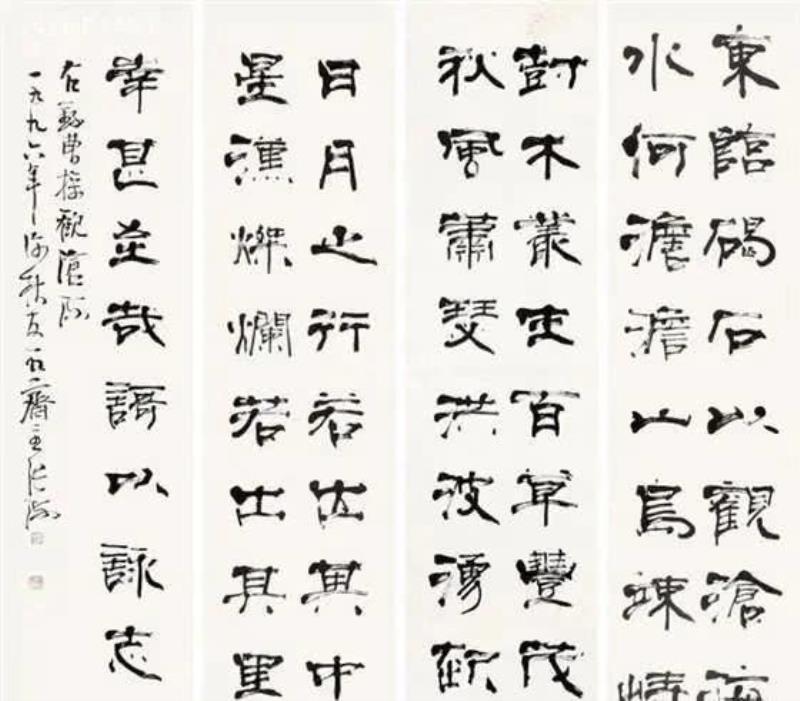 東臨碣石以觀滄海
水何澹澹山島竦
尌木叢生百草豐茂
秋風蕭瑟洪波湧
日月之行若出其中
星漢燦爛若出其里
幸甚至哉謌以詠志
右錄曹操觀滄海
一九九六年